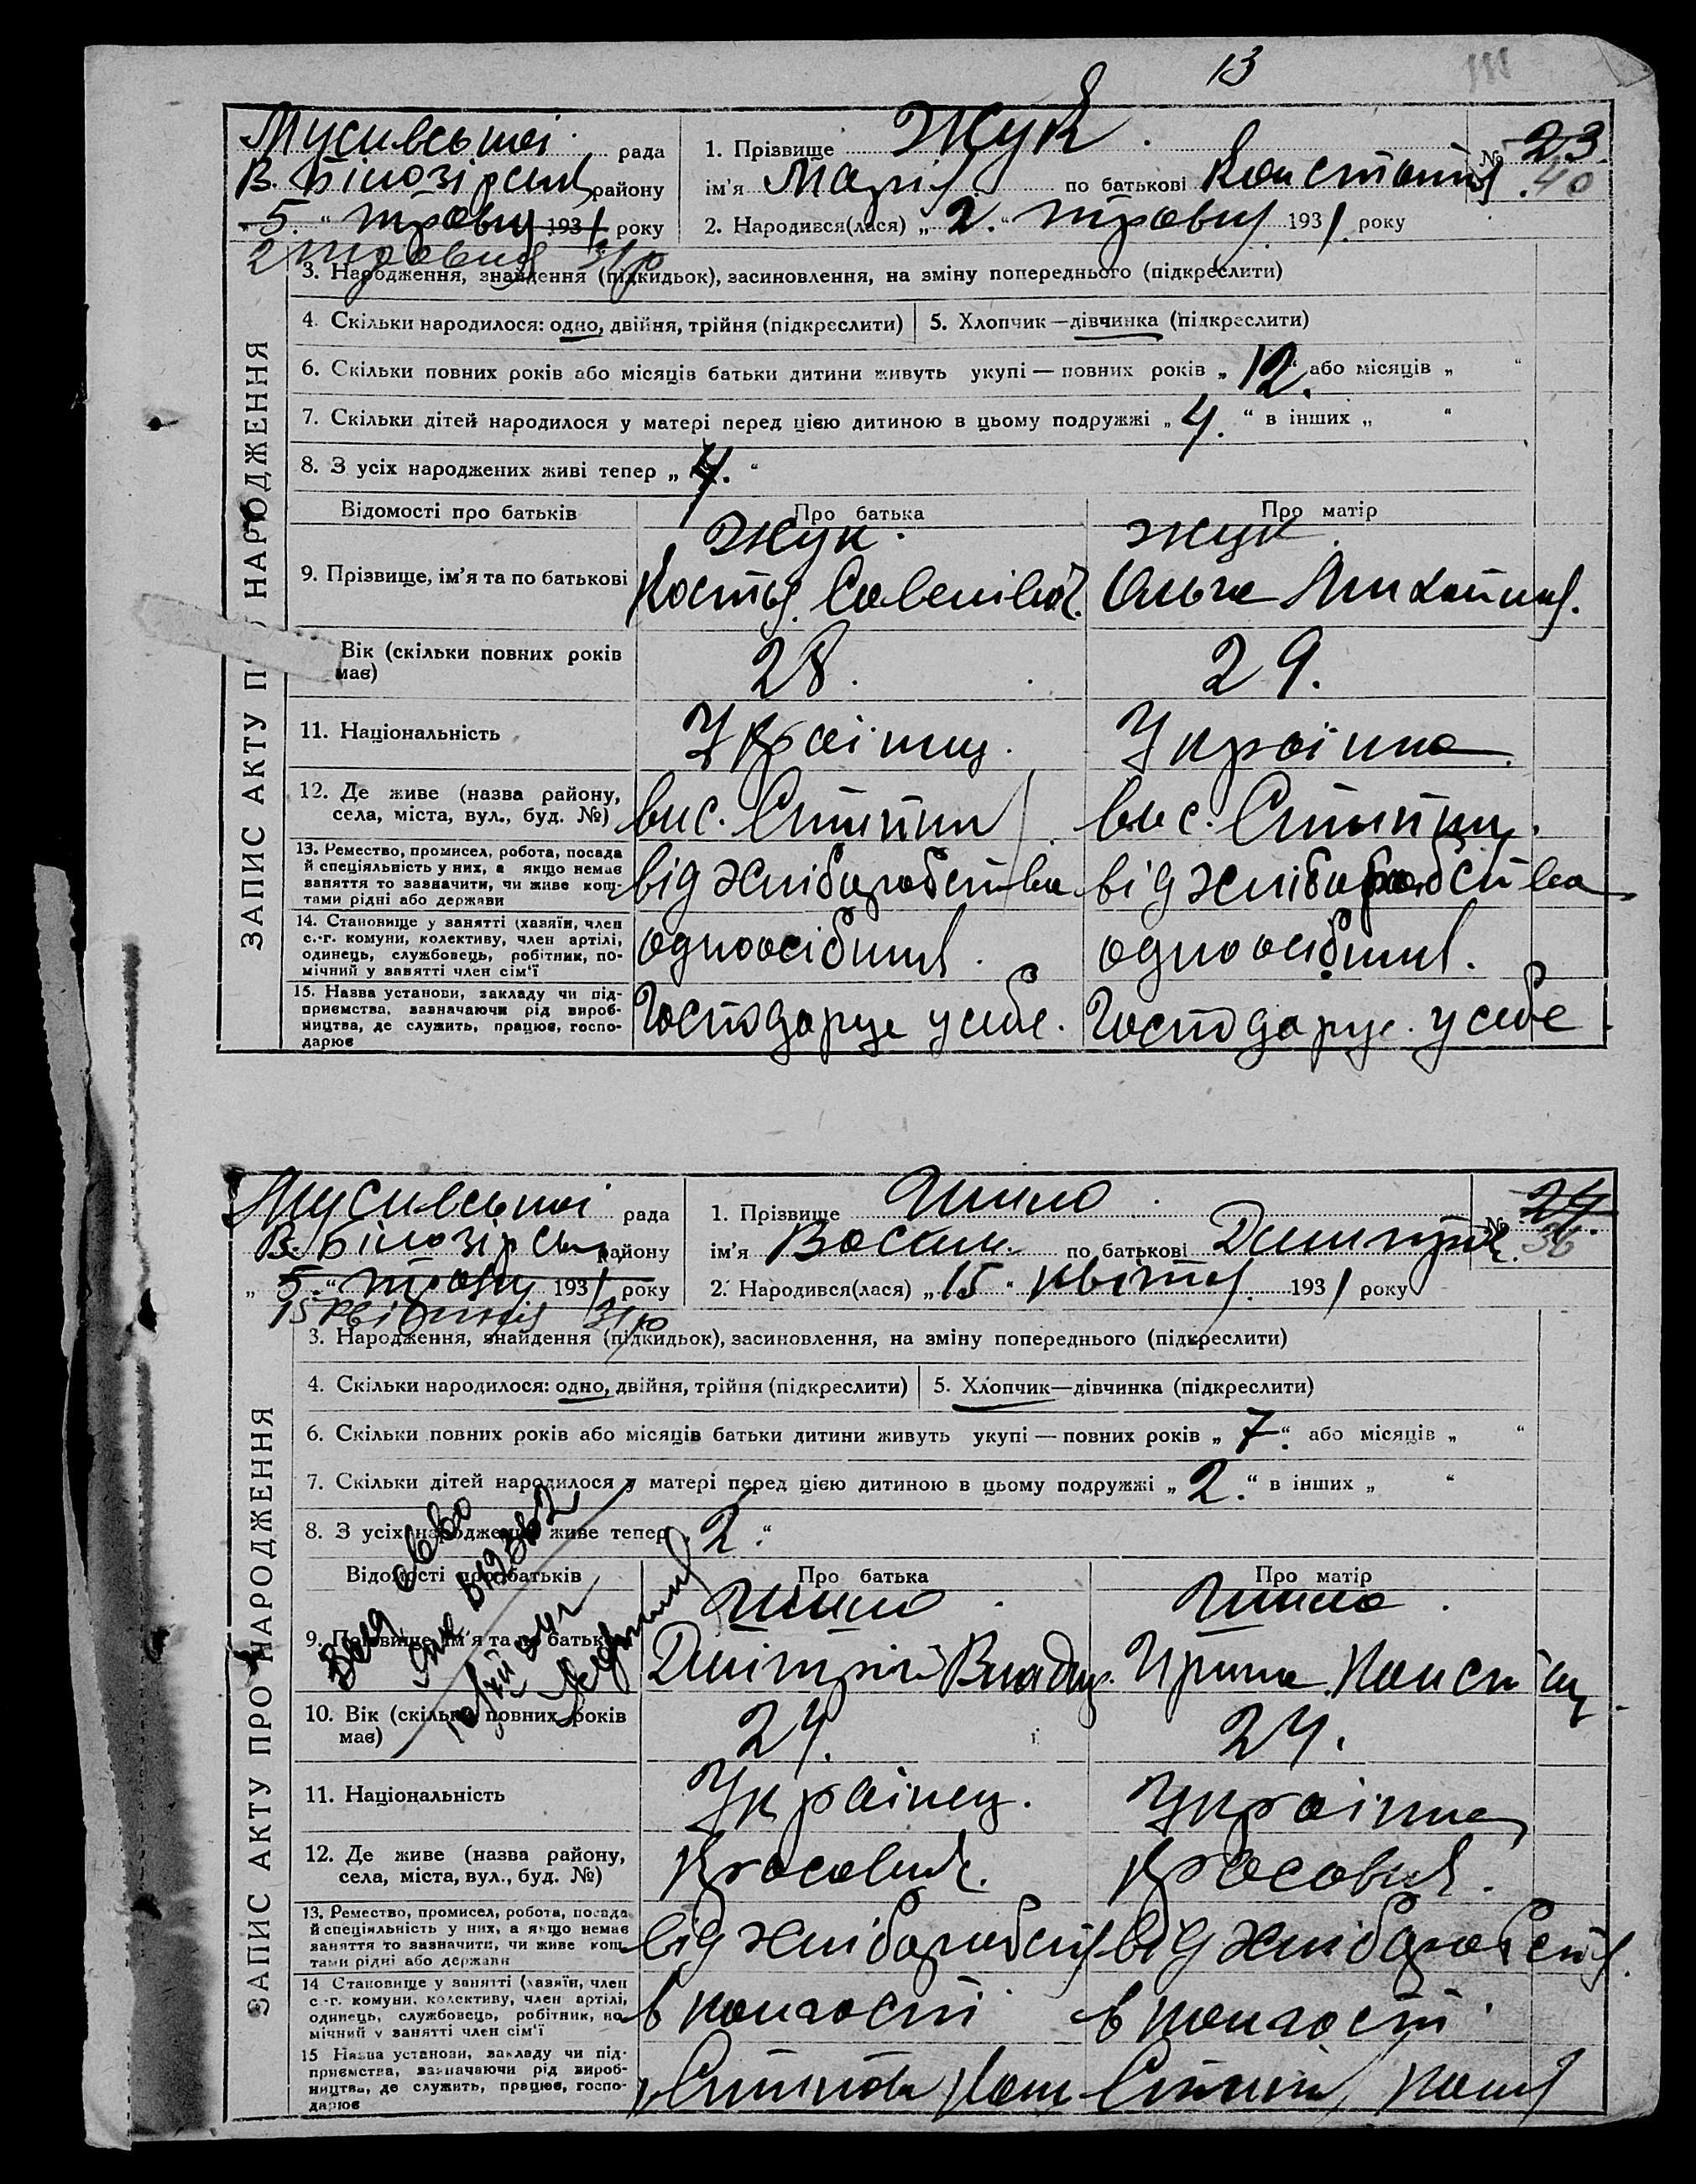 13
Жук
рада
1. Прізвище
№ 23
В. Білозірськ району
ім'я Марія по батькові Констант
40
5 “ травня 1931 року
2. Народився(лася) „ 2. “ травня 1931 року
2 травня 31 р
3. Народження, знайдення (підкидьок), засиновлення, на зміну попереднього (підкреслити)
4. Скільки народилося: одно, двійня, трійня (підкреслити)
5. Хлопчик—дівчинка (підкреслити)
6. Скільки повних років або місяців батьки дитини живуть укупі — повних років „ 12. “ або місяців „ “
7. Скільки дітей народилося у матері перед цією дитиною в цьому подружжі „ 4. “ в інших „ “
8. З усіх народжених живі тепер „ 4. “
Відомості про батьків
Про батька
Про матір
Жук.
Жук.
9. Прізвище, ім'я та по батькові
Ольга
Вік (скільки повних років має)
28.
29.
11. Національність
Українц.
Українка
12. Де живе (назва району, села, міста, вул., буд. №)
вис.
вис.
13. Ремество, промисел, робота, посада
й спеціяльність у них, а якщо немає
заняття то зазначити, чи живе кош-
тами рідні або держави
від хліборобства
від хліборобства
14. Становище у занятті (хазяїн, член
с.-г. комуни, колективу, член артілі,
одинець, службовець, робітник, по-
мічний у занятті член сім'ї
одноосібник.
одноосібник.
15. Назва установи, закладу чи під-
приємства, зазначаючи рід вироб-
ництва, де служить, працює, госпо-
дарює
Господарує у себе.
Господарує у себе
ЗАПИС АКТУ ПРО НАРОДЖЕННЯ
рада
1. Прізвище Шило
№ 24.
В. Білозірськ району
ім'я Васил. по батькові
36
„ 5. “ травн 1931 року
2. Народився(лася) „ 15 “ квітня 1931 року
15 квітня 31 р
3. Народження, знайдення (підкидьок), засиновлення, на зміну попереднього (підкреслити)
4. Скільки народилося: одно, двійня, трійня (підкреслити)
5. Хлопчик—дівчинка (підкреслити)
6. Скільки повних років або місяців батьки дитини живуть укупі — повних років „ 7 “ або місяців „ “
7. Скільки дітей народилося у матері перед цією дитиною в цьому подружжі „ 2. “ в інших „ “
8. З усіх народжених живе тепер 2. “
Відомості про батьків
Про батька
Про матір
Шило
Шило
9. Прізвище, ім'я та по батькові
Дмітрій Влад.
Ирина Конст
10. Вік (скільки повних років має)
24.
24.
11. Національність
Українец.
Українка
12. Де живе (назва району, села, міста, вул., буд. №)
13. Ремество, промисел, робота, посада
й спеціяльність у них, а якщо немає
заняття то зазначити, чи живе кош-
тами рідні або держави
від хліборобств
від хліборобств
14 Становище у занятті (хазяїн, член
с.-г. комуни, колективу, член артілі,
одинець, службовець, робітник, по-
мічний у занятті член сім'ї
в колгоспі
в колгоспі
15 Назва установи, закладу чи під-
приємства, зазначаючи рід вироб-
ництва, де служить, працює, госпо-
дарює
ЗАПИС АКТУ ПРО НАРОДЖЕННЯ